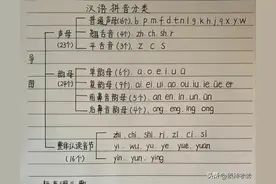 汉语拼音分类
普通声母(16个) b p m f d t n l g k h j q x y w
声母
(23个)
翘舌音(4个) zh ch sh r
平舌音(3个) z c s
导
图
单韵母(6个) a o e i u ü
韵母
(24个)
复韵母(9个) ai ei ui ao ou iu ie üe er
前鼻音韵母(5个) an en in un ün
后鼻音韵母(4个) ang eng ing ong
zhi chi shi ri zi ci si
整体认读音节
yi wu yu ye yue yuan
(16个)
yin yun ying